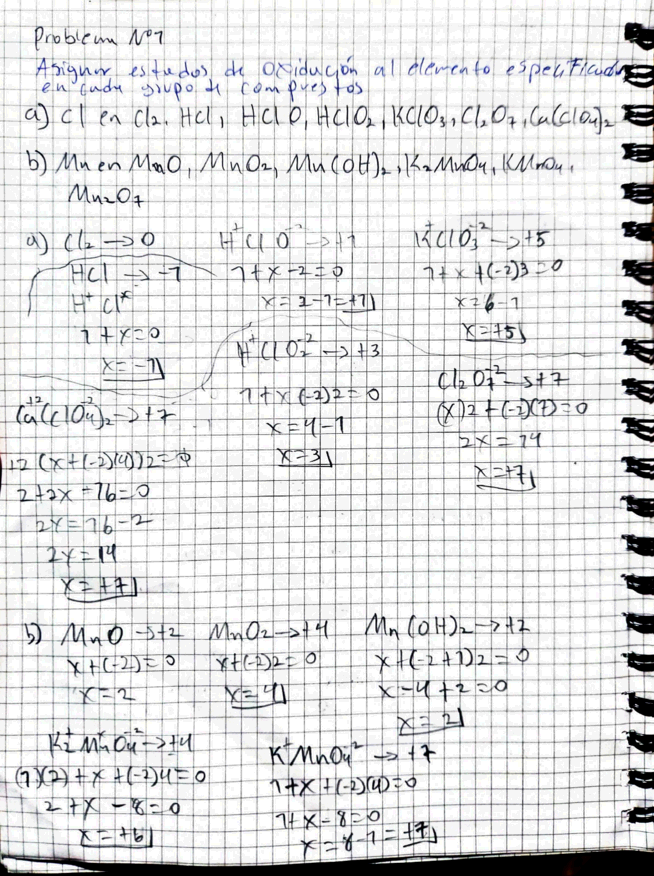 Problema Nº1
Asignar estados de oxidación al elemento especificado
en cada grupo de compuestos
a) Cl en Cl2, HCl, HClO, HClO2, KClO3, Cl2O7, Ca(ClO4)2
b) Mn en MnO, MnO2, Mn(OH)2, K2MnO4, KMnO4,
Mn2O7
a) Cl2 → 0
HCl → -1
H+ Clx
1 + x = 0
x = -1
H+ClO-2 → +1
1 + x - 2 = 0
x = 2 - 1 = +1
K+ClO3-2 → +5
1 + x + (-2)3 = 0
x = 6 - 1
x = +5
H+ClO2-2 → +3
1 + x (-2)2 = 0
x = 4 - 1
x = 3
Cl2O7-2 → +7
(x)2 + (-2)(7) = 0
2x = 14
x = +7
Ca+2(ClO4-2)2 → +7
+2 (x + (-2)(4))2 = 0
2 + 2x - 16 = 0
2x = 16 - 2
2x = 14
x = +7
b) MnO → +2
x + (-2) = 0
x = 2
MnO2 → +4
x + (-2)2 = 0
x = 4
Mn(OH)2 → +2
x + (-2+1)2 = 0
x - 4 + 2 = 0
x = 2
K2+MnxO4-2 → +4
(1)(2) + x + (-2)4 = 0
2 + x - 8 = 0
x = +6
K+MnO4-2 → +7
1 + x + (-2)(4) = 0
1 + x - 8 = 0
x = 8 - 1 = +7